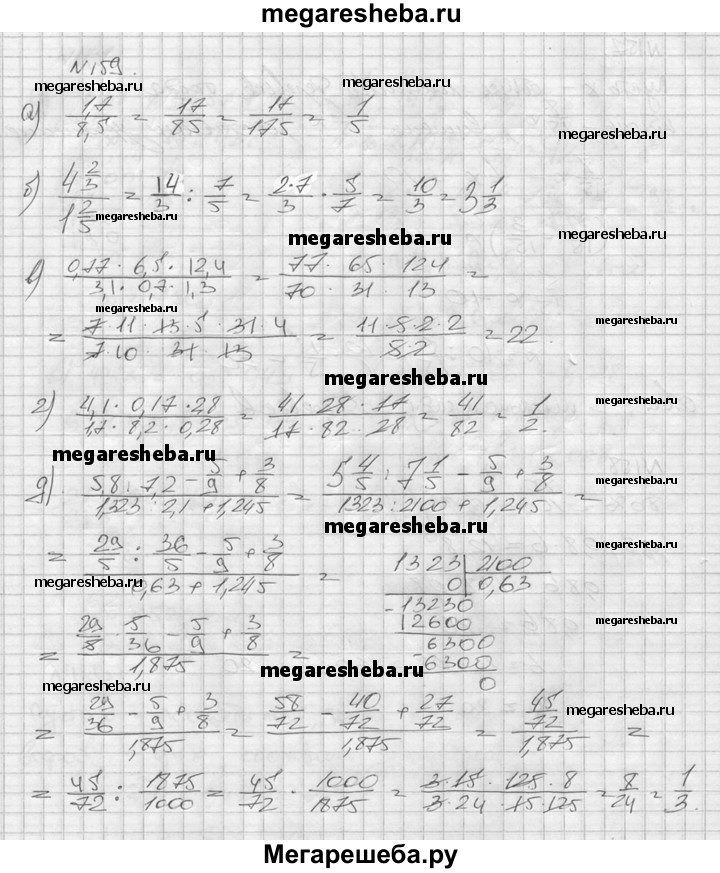 megaresheba.ru
N159.
megaresheba.ru megaresheba.ru
а) 1,7/8,5 = 17/85 = 17/17·5 = 1/5
megaresheba.ru
б) 4 2/3 / 1 2/5 = 14/3 : 7/5 = 2·7/3 · 5/7 = 10/3 = 3 1/3
megaresheba.ru
megaresheba.ru
в) 0,77 · 6,5 · 12,4 / 3,1 · 0,7 · 1,3 = 77 · 65 · 124 / 70 · 31 · 13 =
megaresheba.ru
megaresheba.ru
= 7·11·13·5·31·4 / 7·10·31·13 = 11·5·2·2 / 5·2 = 22.
megaresheba.ru
megaresheba.ru
г) 4,1 · 0,17 · 2,8 / 1,7 · 8,2 · 0,28 = 41 · 28 · 17 / 17 · 82 · 28 = 41/82 = 1/2.
megaresheba.ru
д) 5,8 : 7,2 - 5/9 + 3/8 / 1,323 : 2,1 + 1,245 = 5 4/5 : 7 1/5 - 5/9 + 3/8 / 1323 : 2100 + 1,245 =
megaresheba.ru
megaresheba.ru
= 29/5 : 36/5 - 5/9 + 3/8 / 0,63 + 1,245 =
megaresheba.ru
1323 | 2100
0 | 0,63
-13230
12600
-6300
-6300
0
megaresheba.ru
= 29/5 · 5/36 - 5/9 + 3/8 / 1,875 =
megaresheba.ru
megaresheba.ru
= 29/36 - 5/9 + 3/8 / 1,875 = 58/72 - 40/72 + 27/72 / 1,875 = 45/72 / 1,875 =
megaresheba.ru
= 45/72 : 1875/1000 = 45/72 · 1000/1875 = 3·15·125·8 / 3·24·15·125 = 8/24 = 1/3.
Мегарешеба.ру